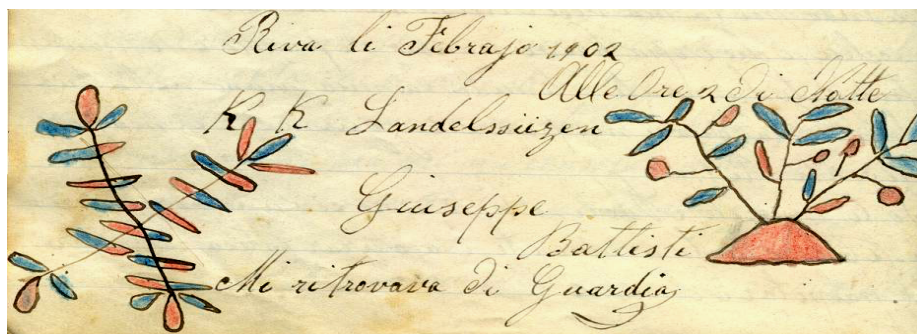 Riva li Febrajo 1902
Alle Ore 2 di Notte
K K Landelssüzen
Giuseppe
Battisti
Mi ritrovava di Guardia